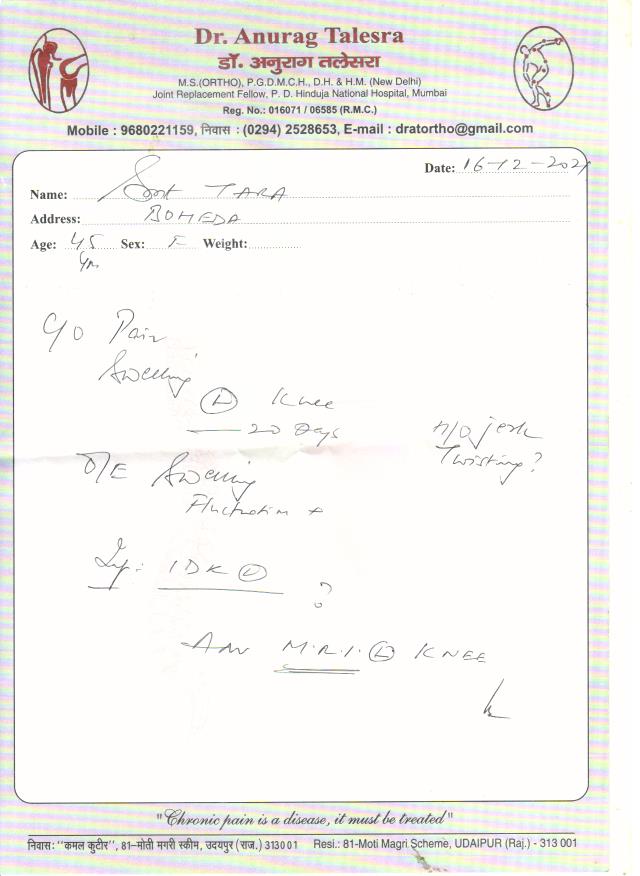 Dr. Anurag Talesra
डॉ. अनुराग तलेसरा
M.S.(ORTHO), P.G.D.M.C.H., D.H. & H.M. (New Delhi)
Joint Replacement Fellow, P. D. Hinduja National Hospital, Mumbai
Reg. No.: 016071 / 06585 (R.M.C.)
Mobile : 9680221159, निवास : (0294) 2528653, E-mail : dratortho@gmail.com
Date: 16-12-2021
Name: Smt TARA
Address: BOHEDA
Age: 45 yrs Sex: F Weight:
C/O Pain
Swelling
(L) Knee
— 20 Days
H/O jerk
Twisting?
O/E Swelling
Fluctuation +
Imp: IDK (L)
?
Adv M.R.I. (L) KNEE
"Chronic pain is a disease, it must be treated"
निवास: "कमल कुटीर", 81-मोती मगरी स्कीम, उदयपुर (राज.) 313001 Resi.: 81-Moti Magri Scheme, UDAIPUR (Raj.) - 313 001